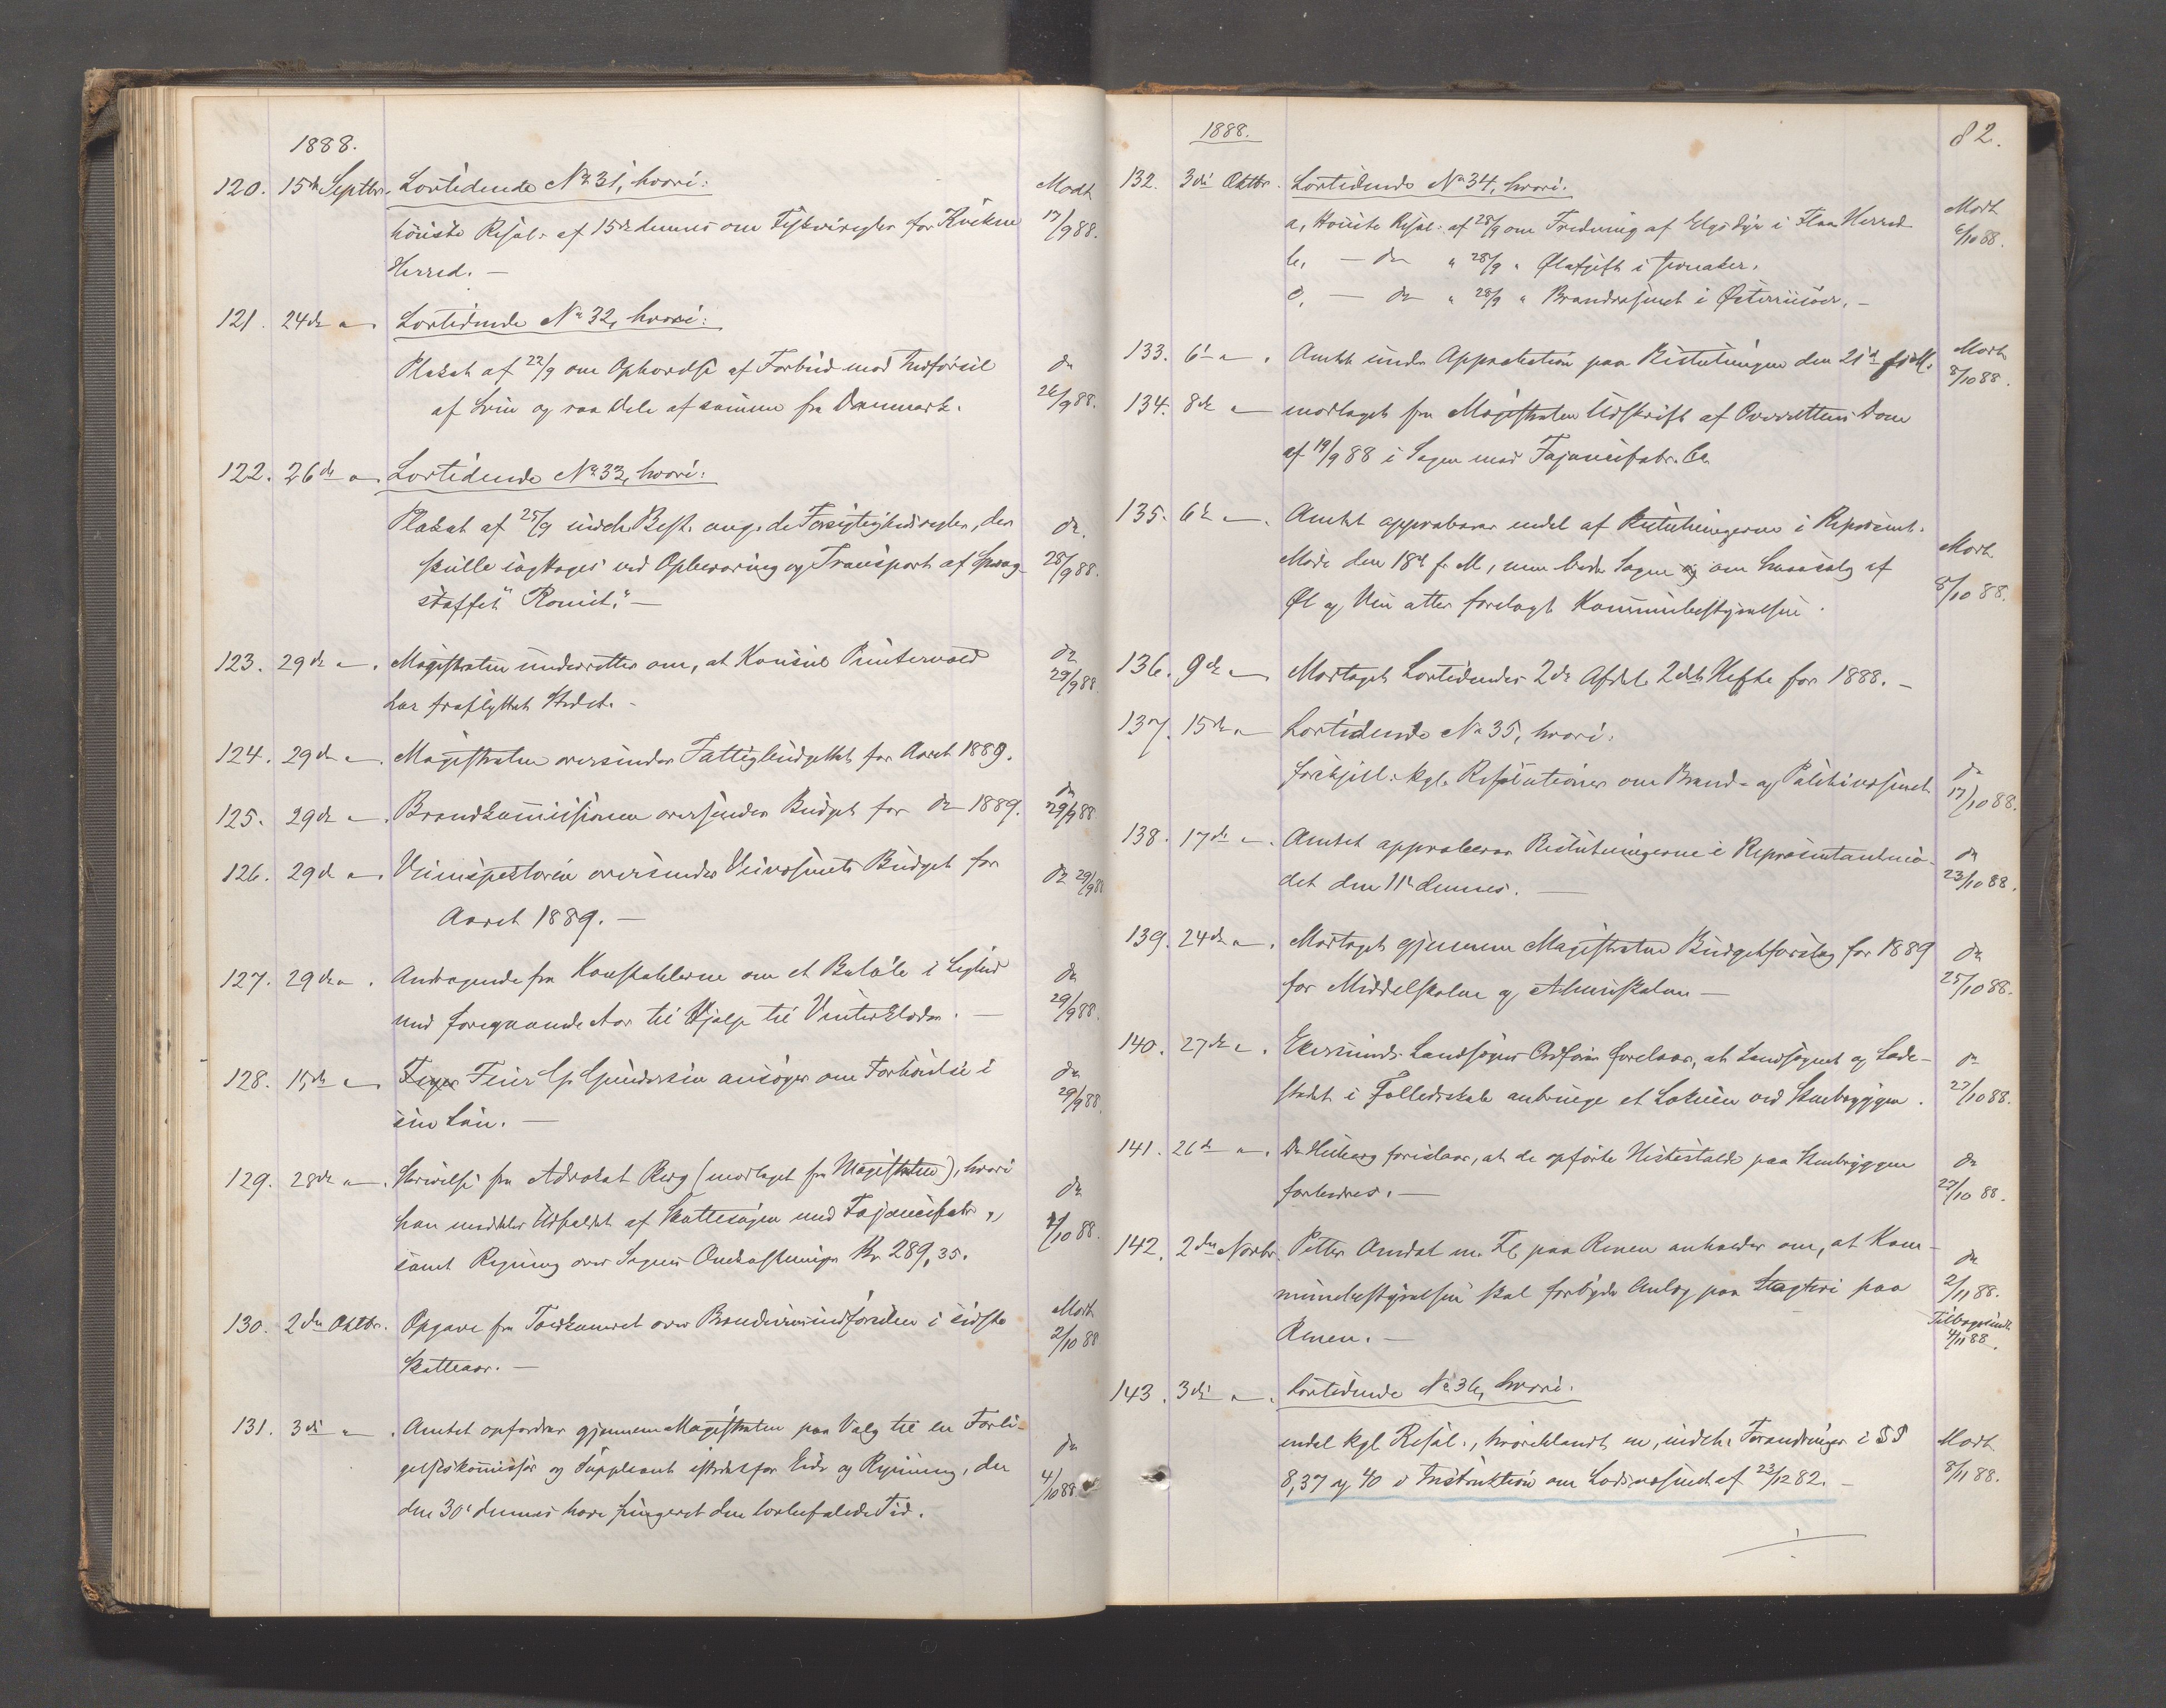 1888.
120. 15de Septbr. Lovtidende No 31, hvori: Modt
høieste Resol. af 15de dennes om Fiskeriregler for Kvikne 17/9 88.
Herred. —
121. 24de " . Lovtidende No 32, hvori:
Plakat af 22/9 om Ophørelse af Forbud mod Indførsel do
af Svin og raa Dele af samme fra Danmark. 26/9 88.
122. 26de " . Lovtidende No 33, hvori:
Plakat af 25/9 indeh. Best. ang. de Forsigtighedsregler, der do.
skulle iagttages ved Opbevaring og Transport af Spræng- 28/9 88.
stoffet "Romit." —
123. 29de " . Magistraten underretter om, at Konsul Puntervold do
har fraflyttet Stedet. - 29/9 88
124. 29de " . Magistraten oversender Fattigbudgettet for Aaret 1889.
125. 29de " . Brandkommissionen oversender Budget for do 1889. do 29/9 88
126. 29de " . Veiinspektøren oversender Veivæsenets Budget for do 29/9 88
Aaret 1889. —
127. 29de " . Andragende fra Konstablerne om et Beløb i Lighed do
med foregaaende Aar til Hjælp til Vinterklæder. — 29/9 88.
128. 15de " Feier G. Gundersen ansøger om Forhøielse i do
sin Løn. — 29/9 88.
129. 28de " . Skrivelse fra Advokat Berg (modtaget fra Magistraten), hvori
han meddeler Udfaldet af Skattesagen med Fajancefabr., do
samt Regning over Sagens Omkostninger Kr. 289,35. 2/10 88.
130. 2den Oktbr. Opgave fra Toldkammeret over Brændevinsindførselen i sidste Modt
Skatteaar. — 2/10 88
131. 3die " . Amtet opfordrer gjennem Magistraten paa Valg til en Forli-
gelseskommissær og Suppleant istedetfor Eide og Rynning, der do
den 30te dennes have fungeret den lovbefalede Tid. 4/10 88
1888. 82.
132. 3die Oktbr. Lovtidende No 34, hvori:
a, Høieste Resol. af 28/9 om Fredning af Elgsdyr i Flaa Herred Modt 6/10 88.
b, — do " 28/9 " Ølafgift i
c, — do " 28/9 " Brandvæsenet i Østerriisøer. —
133. 6te " . Amtets Approbation paa Beslutningen den 21de f. M. Modt 8/10 88.
134. 8de " modtaget fra Magistraten Udskrift af Overrettens Dom
af 19/9 88 i Sagen mod Fajancefabr. Co
135. 6te " . Amtet approberer endel af Beslutningerne i Repræsent.
Møde den 18de f. M., men beder Sagen om Udsalg af Modt.
Øl og Vin atter forelagt Kommunebestyrelsen. 8/10 88.
136. 9de " Modtaget Lovtidendes 2de Afdel. 2det Hefte for 1888. —
137. 15de " Lovtidende No 35, hvori:
forskjell. kgl. Resolutioner om Brand- og Politivæsenet do 17/10 88.
138. 17de " . Amtet approberer Beslutningerne i Repræsentantmø- do
det den 11te dennes. — 23/10 88.
139. 24de " . Modtaget gjennem Magistraten Budgetforslag for 1889 do
for Middelskolen og Almueskolen — 25/10 88.
140. 27de " . Ekersunds Landsogns Ordfører foreslaar, at Landsognet og Lade- do
stedet i Fællesskab anbringe et Lokum ved Skuebryggen. 27/10 88.
141. 26de " . Dr Heiberg foreslaar, at de opførte Hestestalde paa do
forbedres. — 27/10 88.
142. 2den Novbr. Petter Omdal m. Fl. paa Renen anholder om, at Kom- do
munebestyrelsen skal forbyde Anlæg paa Slagteri paa 2/11 88.
Renen. — Tilbagesendt 4/11 88.
143. 3die " . Lovtidende No 36, hvori:
endel kgl. Resol., hvoriblandt en, indeh. Forandringer i §§ Modt
8, 37 og 40 i Instruktion om Lodsvæsenet af 23/12 82. — 8/11 88.